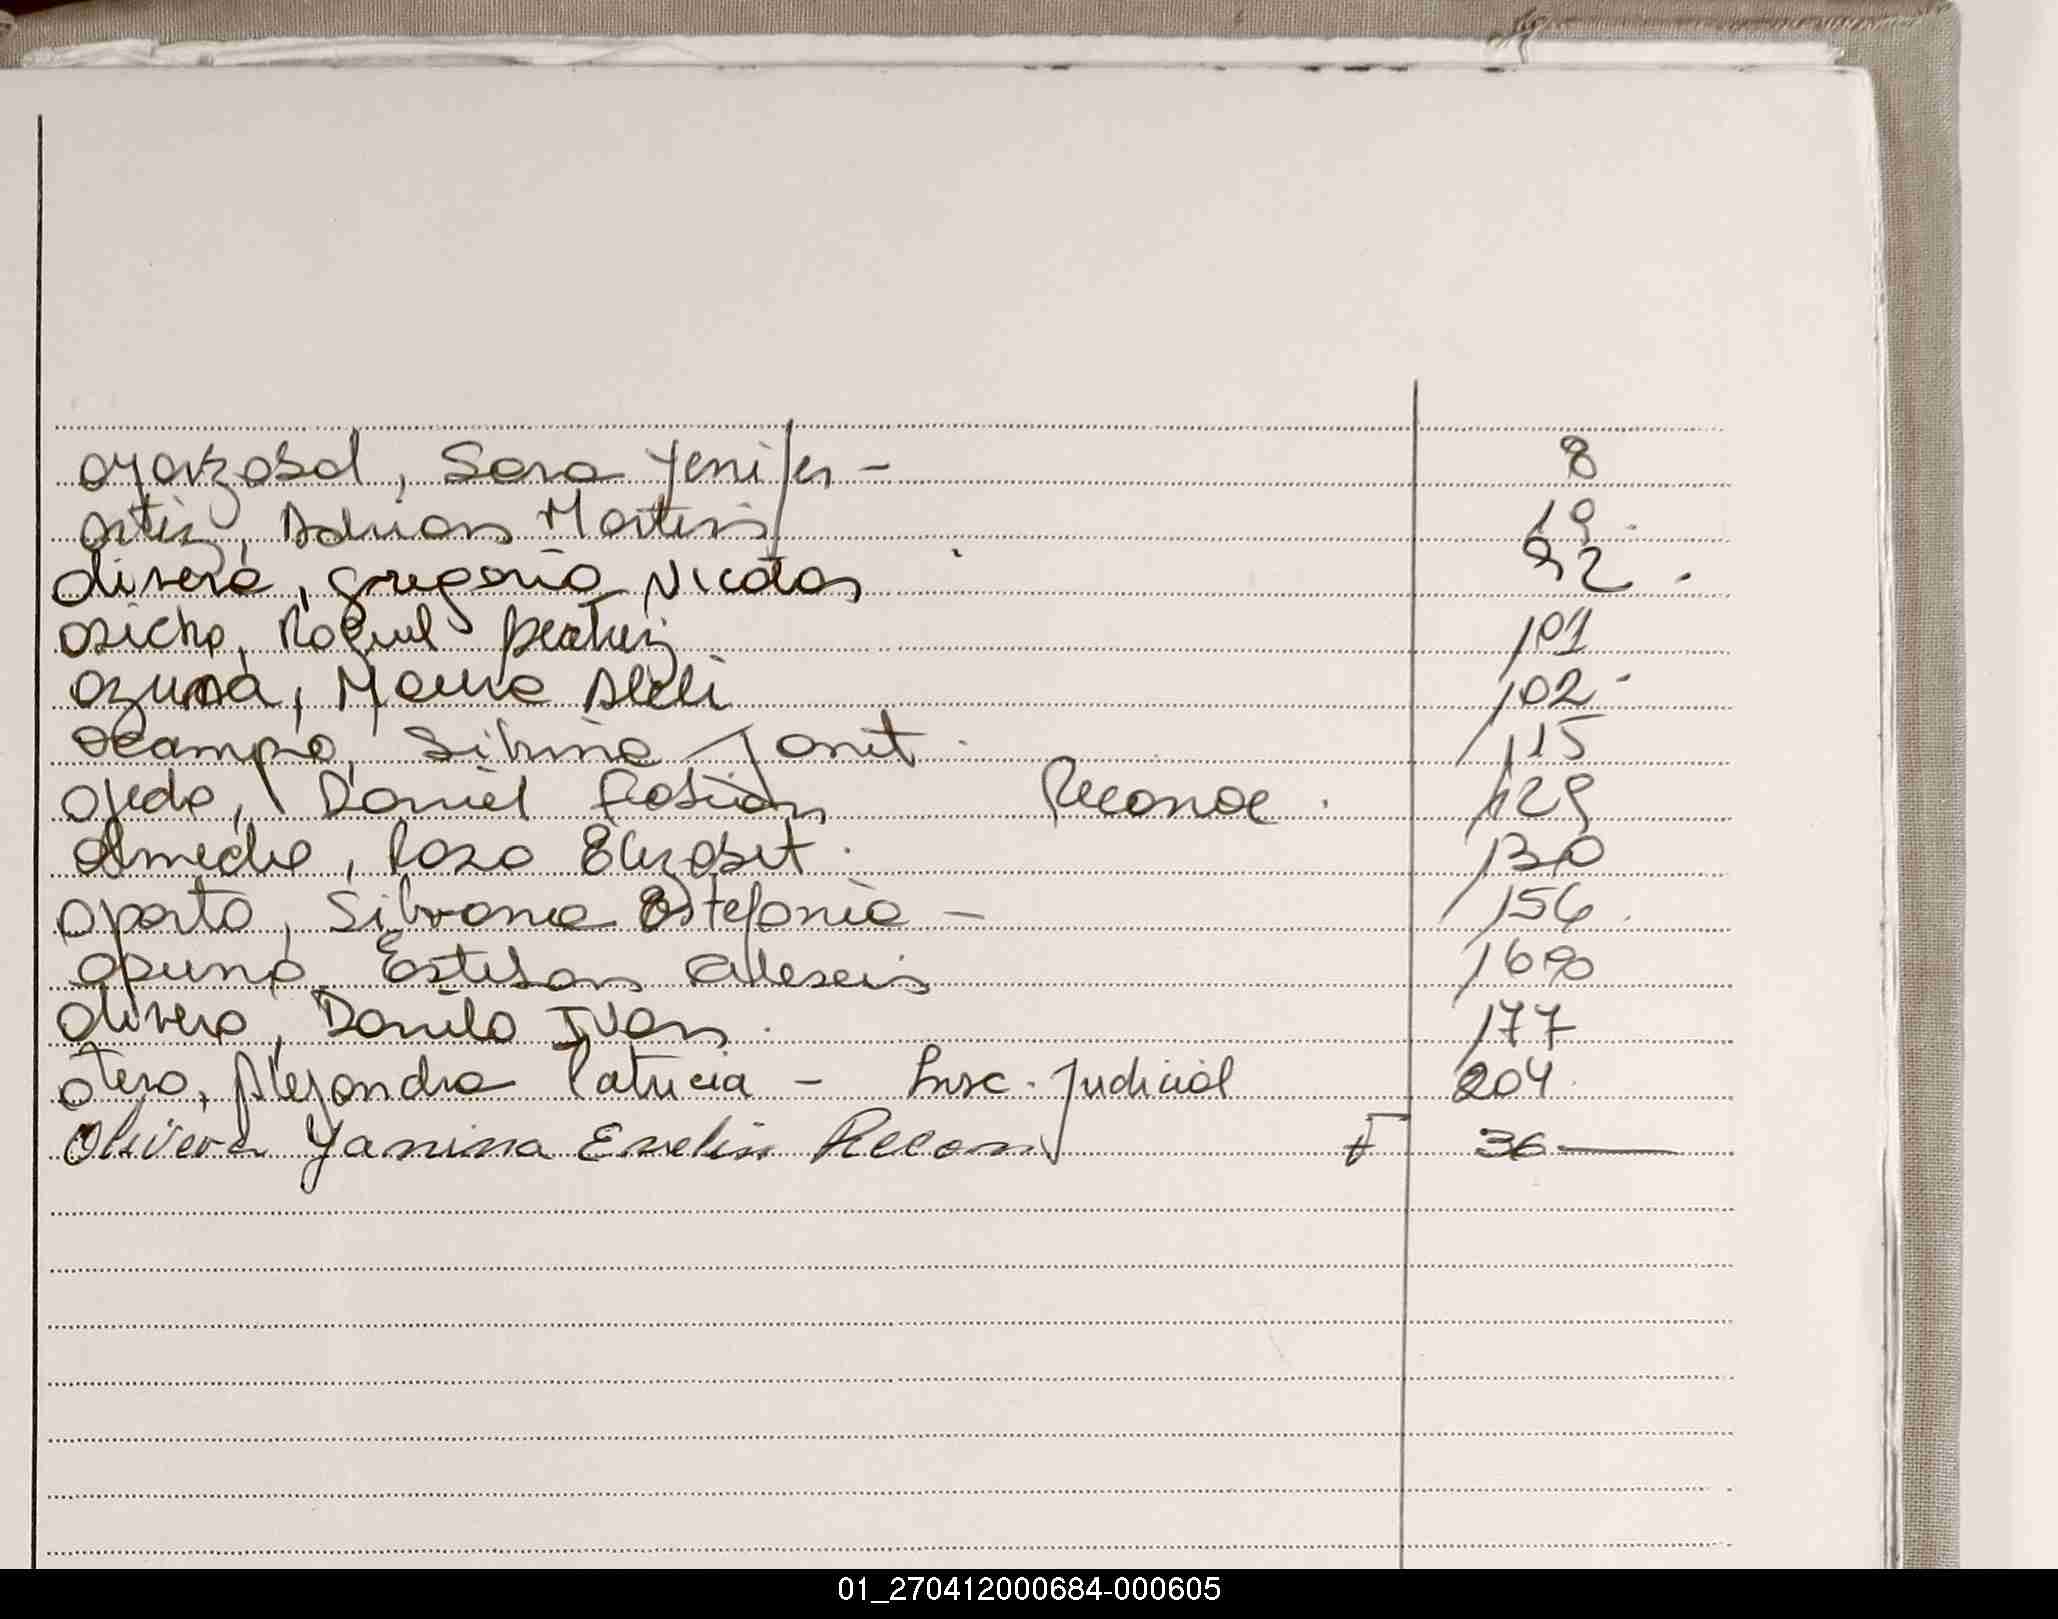 Oyarzabal, Sara Yenifer - 8
Ortiz, Adrian Martin 19.
Olivera, Gregorio Nicolas 92.
Raquel Beatriz 101
Ozuna, Maria Aleli 102-
Ocampo, Silvina Janet. 115
Ojeda, Daniel Fabian Reconoc. 129
Olmedo, Rosa Elizabet. 130
Oporto, Silvana Estefania - 156.
Esteban Alexis
Olivera, Danilo Ivan. 177
Otero, Alejandra Patricia - Insc. Judicial 204.
Olivera Yanina Evelin Recon F 36
01_270412000684-000605